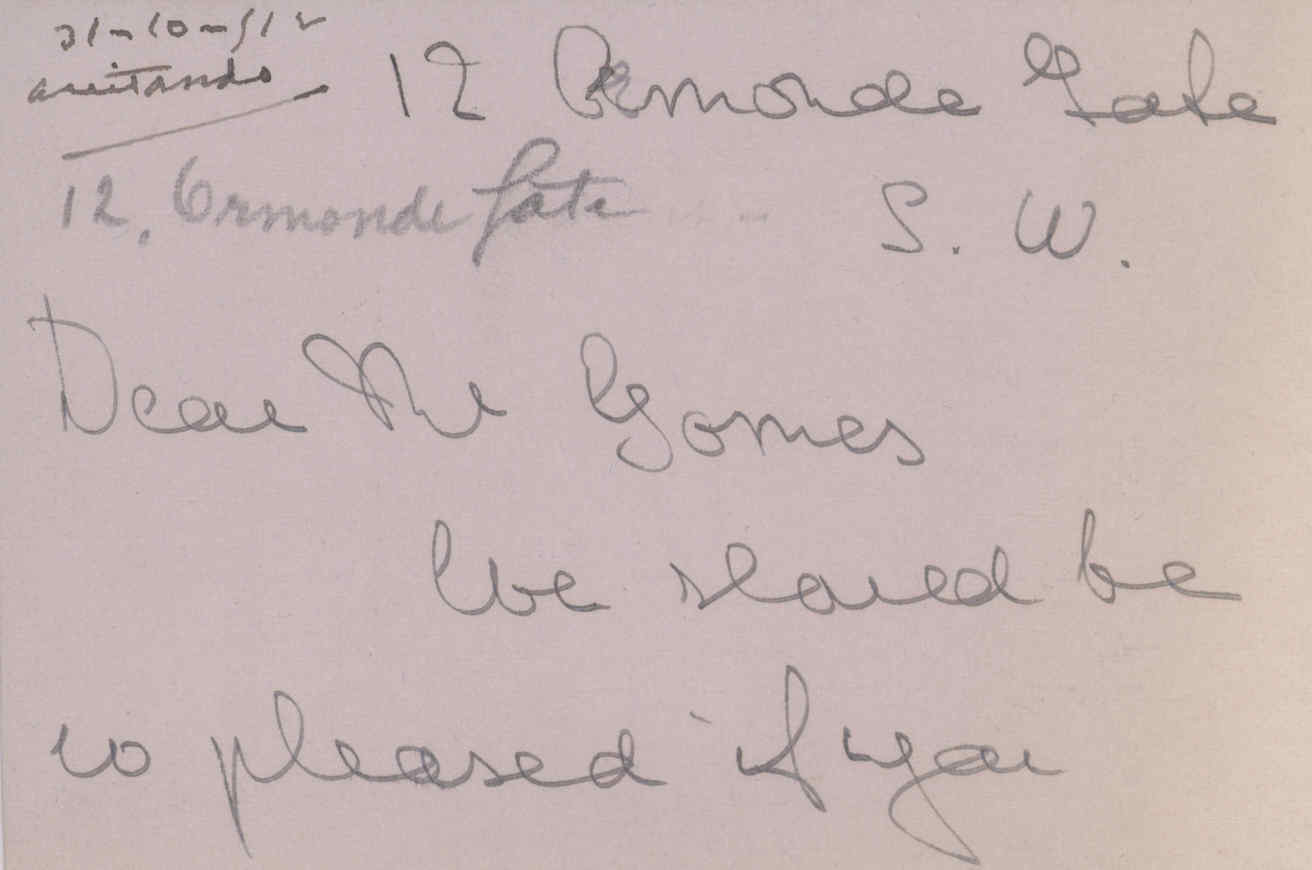 31-10-912
aceitando
12 Ormonde Gate
12, Ormonde Gate
S. W.
Dear Mr Gomes
We should be
so pleased if you